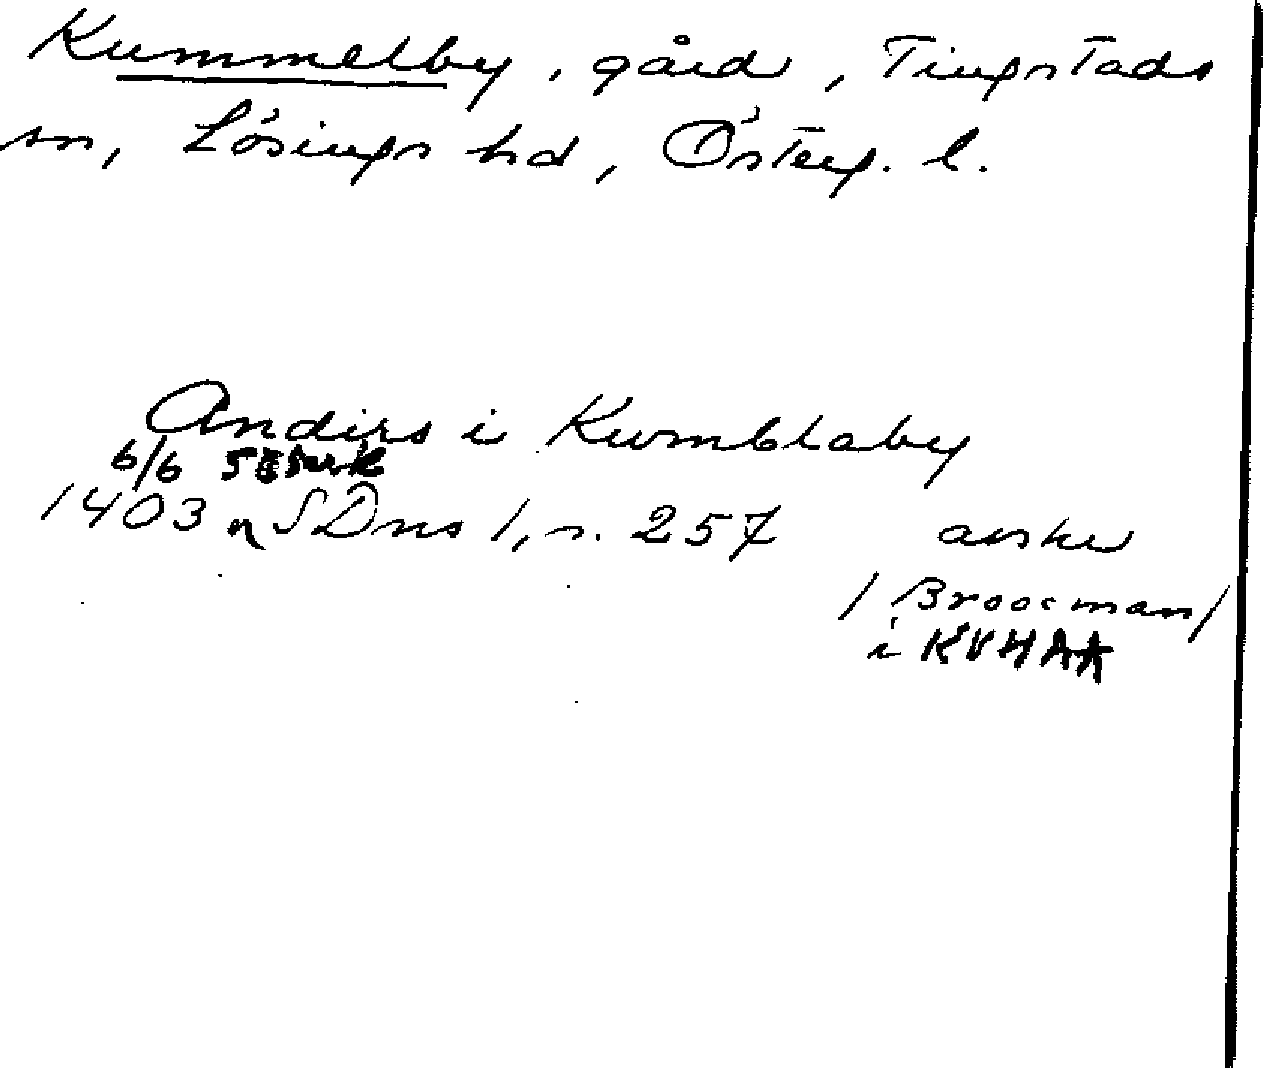 Kummelby, gård, Tingstads
sn, Lösings hd, Österg. l.
Anders i Kumblaby
6/6
1403 SDns 1, n. 257 avskr
/Broocman/
i KVHAA